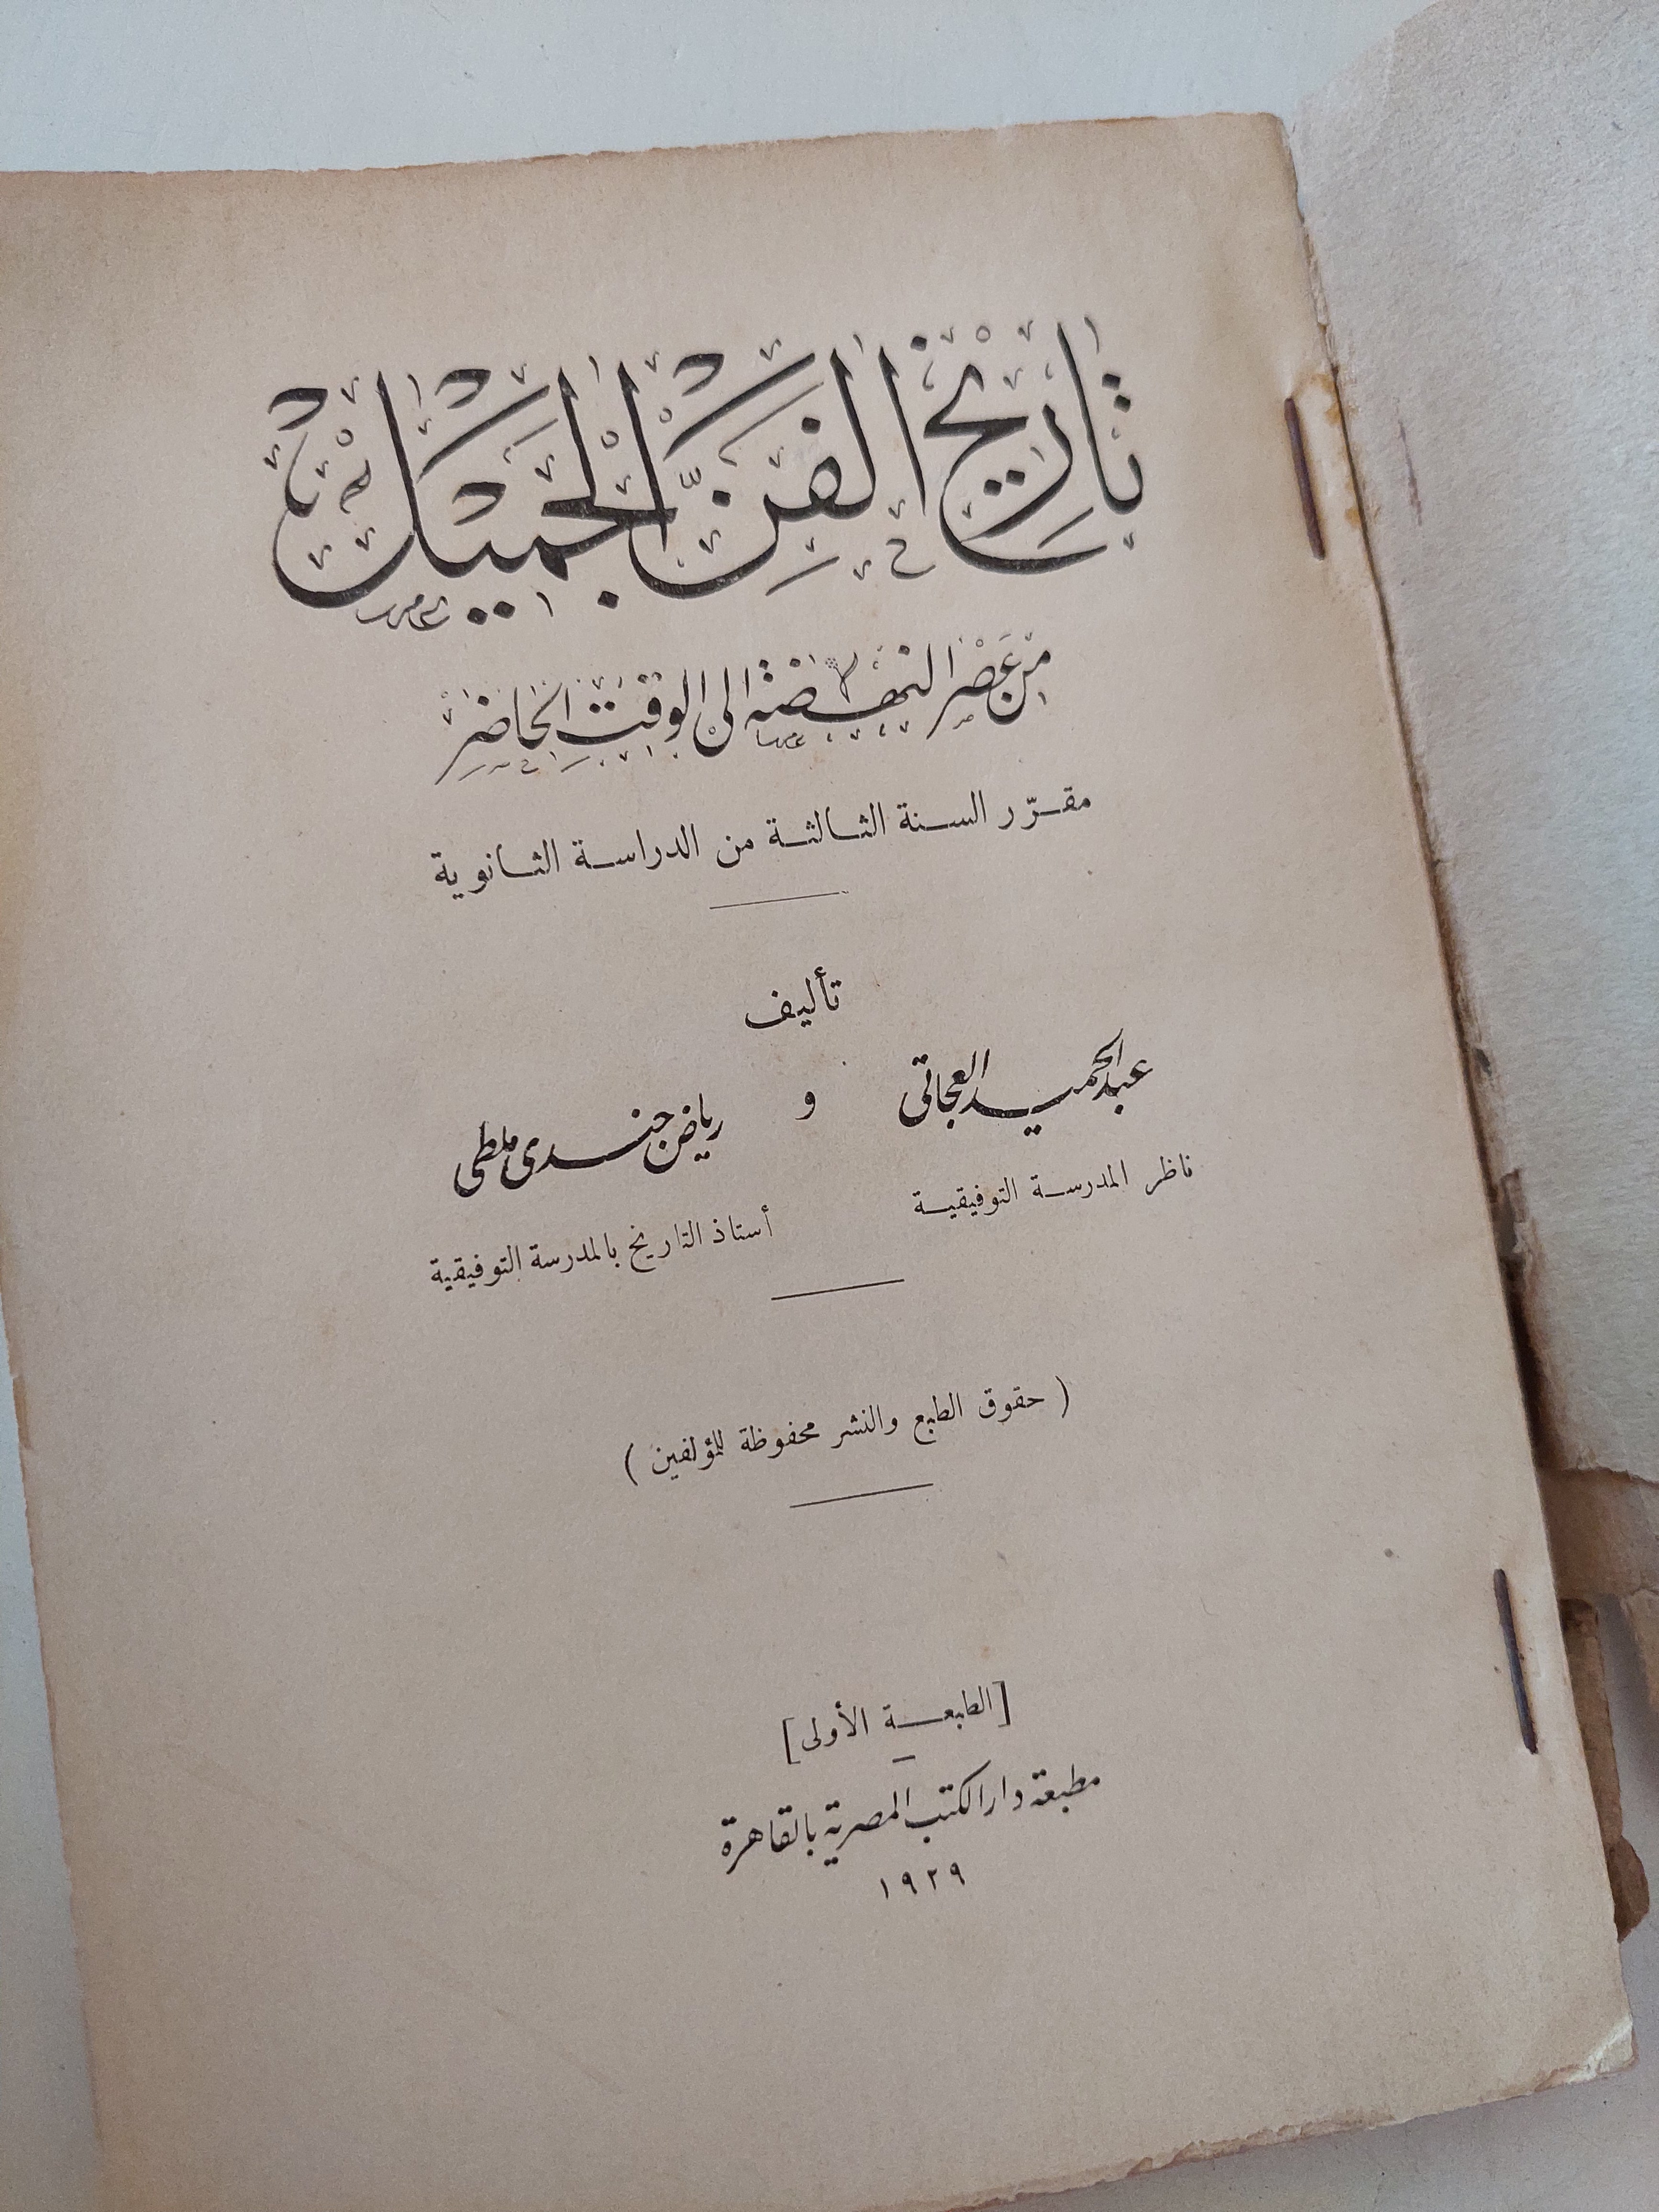 تاريخ الفن الجميل
من عصر النهضة الى الوقت الحاضر
مقرّر السنة الثالثة من الدراسة الثانوية
تأليف
عبد الحميد العجاتى و رياض جندى ملطى
ناظر المدرسة التوفيقية أستاذ التاريخ بالمدرسة التوفيقية
( حقوق الطبع والنشر محفوظة للمؤلفين )
[الطبعة الأولى]
مطبعة دار الكتب المصرية بالقاهرة
١٩٢٩